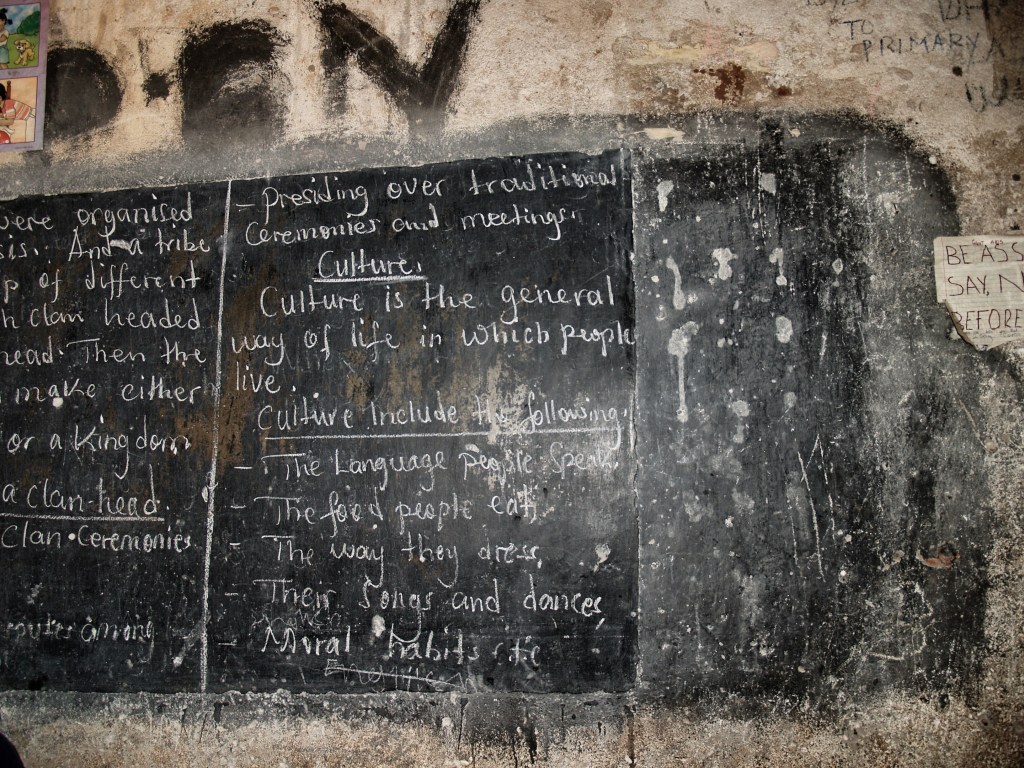 TO
PRIMARY
were organised
And a tribe
of different
clan headed
head. Then the
make either
or a Kingdom
a Clan-head.
Clan Ceremonies
among
- Presiding over traditional
Ceremonies and meetings.
Culture.
Culture is the general
way of life in which people
live.
Culture Include the following.
- The Language people Speak.
- The food people eat,
- The way they dress,
- Their Songs and dances,
- Moral habits etc
BE ASS
SAY, N
BEFORE